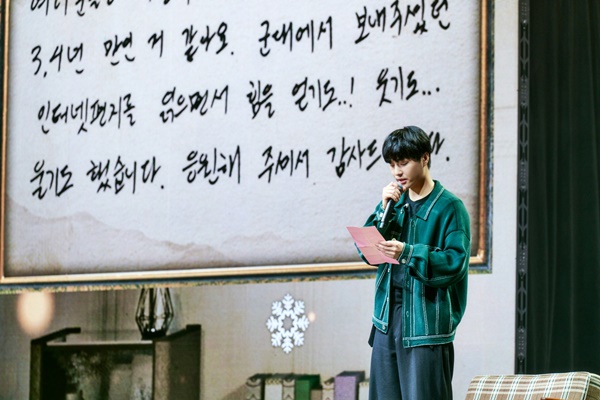 3,4년 만연 저 같나요. 군대에서 보내주셨던
인터넷편지를 읽으면서 힘을 얻기도..! 웃기도...
울기도 했습니다. 응원해 주셔서 감사드